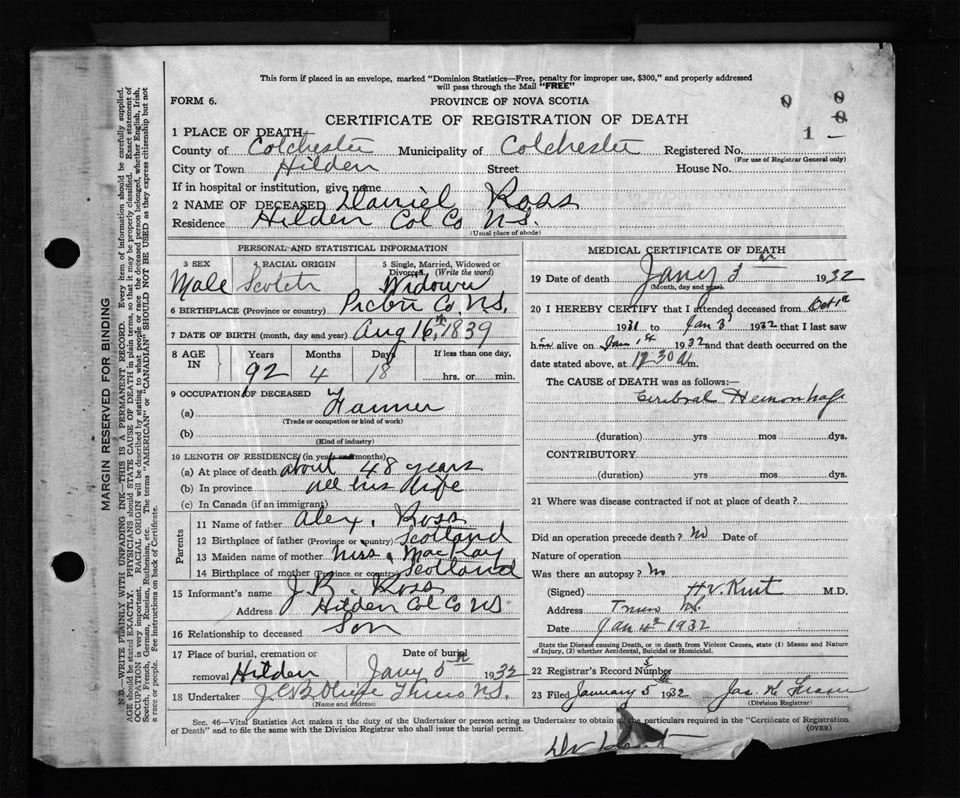 This form if placed in an envelope, marked "Dominion Statistics—Free, penalty for improper use, $300," and properly addressed
will pass through the Mail "FREE"
FORM 6.
PROVINCE OF NOVA SCOTIA
CERTIFICATE OF REGISTRATION OF DEATH
1 PLACE OF DEATH
County of Colchester Municipality of Colchester Registered No.
(For use of Registrar General only)
City or Town Hilden Street House No.
If in hospital or institution, give name
2 NAME OF DECEASED Daniel Ross
Residence Hilden Col Co N.S.
(Usual place of abode)
PERSONAL AND STATISTICAL INFORMATION
3 SEX 4 RACIAL ORIGIN 5 Single, Married, Widowed or Divorced (Write the word)
Male Scotch Widower
6 BIRTHPLACE (Province or country) Pictou Co. N.S.
7 DATE OF BIRTH (month, day and year) Aug 16th, 1839
8 AGE IN Years Months Days If less than one day,
92 4 18 hrs. or min.
9 OCCUPATION OF DECEASED
(a) Farmer
(Trade or occupation or kind of work)
(b)
(Kind of industry)
10 LENGTH OF RESIDENCE (in years and months)
(a) At place of death about 48 years
(b) In province all his life
(c) In Canada (if an immigrant)
Parents
11 Name of father Alex. Ross
12 Birthplace of father (Province or country) Scotland
13 Maiden name of mother Miss MacKay
14 Birthplace of mother (Province or country) Scotland
15 Informant's name J. R. Ross
Address Hilden Col Co NS
16 Relationship to deceased Son
17 Place of burial, cremation or removal Hilden Date of burial Jany 5th 1932
18 Undertaker Truro N.S.
(Name and address)
MEDICAL CERTIFICATE OF DEATH
19 Date of death Jany 3 1932
(Month, day and year)
20 I HEREBY CERTIFY that I attended deceased from Oct 1st
1931 to Jan 3 1932 that I last saw
him alive on Jan 1st 1932 and that death occurred on the
date stated above, at 12.30 a.m.
The CAUSE OF DEATH was as follows:—
Cerebral Hemorrhage
(duration) yrs mos dys.
CONTRIBUTORY
(duration) yrs mos dys.
21 Where was disease contracted if not at place of death?
Did an operation precede death? No Date of
Nature of operation
Was there an autopsy? No
(Signed) H.V. Kent M.D.
Address Truro N.S.
Date Jan 4th 1932
State the Disease causing Death, or in death from Violent Causes, state (1) Means and
Nature of Injury, (2) whether Accidental, Suicidal or Homicidal.
22 Registrar's Record Number 5
23 Filed January 5th 1932 Jas. H Fraser
(Division Registrar)
Sec. 46—Vital Statistics Act makes it the duty of the Undertaker or person acting as Undertaker to obtain all the particulars required in the "Certificate of Registration
of Death" and to file the same with the Division Registrar who shall issue the burial permit.
(OVER)
Dr Kent
MARGIN RESERVED FOR BINDING
N.B.—WRITE PLAINLY WITH UNFADING INK—THIS IS A PERMANENT RECORD. Every item of information should be carefully supplied.
AGE should be stated EXACTLY. PHYSICIANS should STATE CAUSE OF DEATH in plain terms, so that it may be properly classified. Exact statement of
OCCUPATION is very important. RACIAL ORIGIN will be described by stating to what people or race the deceased person belonged, whether English, Irish,
Scotch, French, German, Russian, Ruthenian, etc. The terms "AMERICAN" or "CANADIAN" SHOULD NOT BE USED as they express citizenship but not
a race or people. See instructions on back of Certificate.